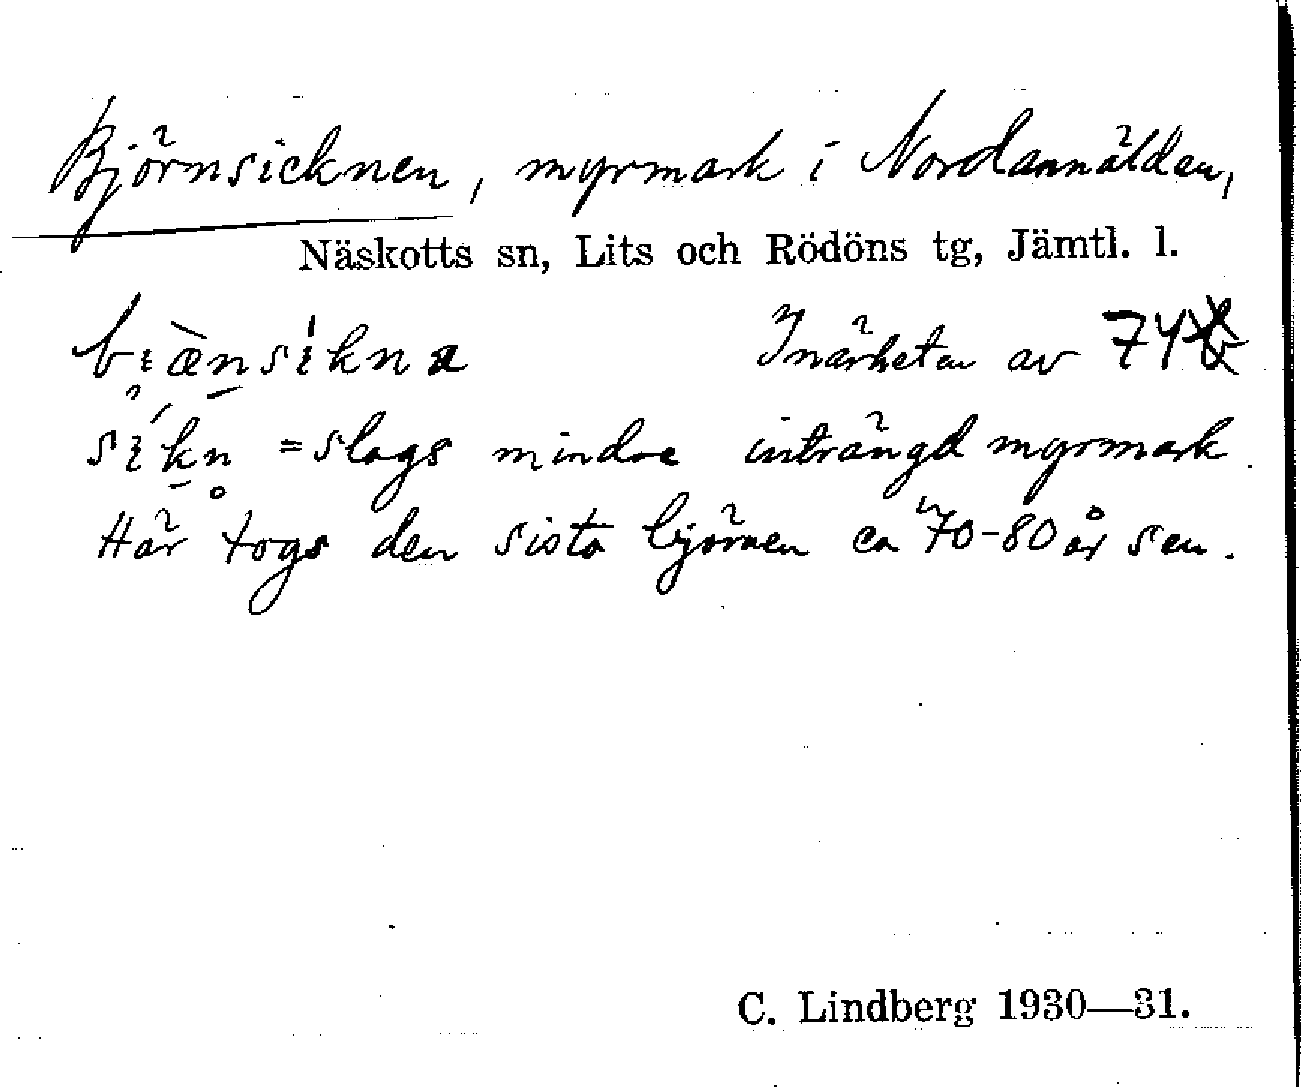 Björnsicknen, myrmark i Nordannälden,
Näskotts sn, Lits och Rödöns tg, Jämtl. l.
I närheten av 74
= slags mindre inträngd myrmark.
Här togs den sista björnen ca 70-80 år sen.
C. Lindberg 1930—31.